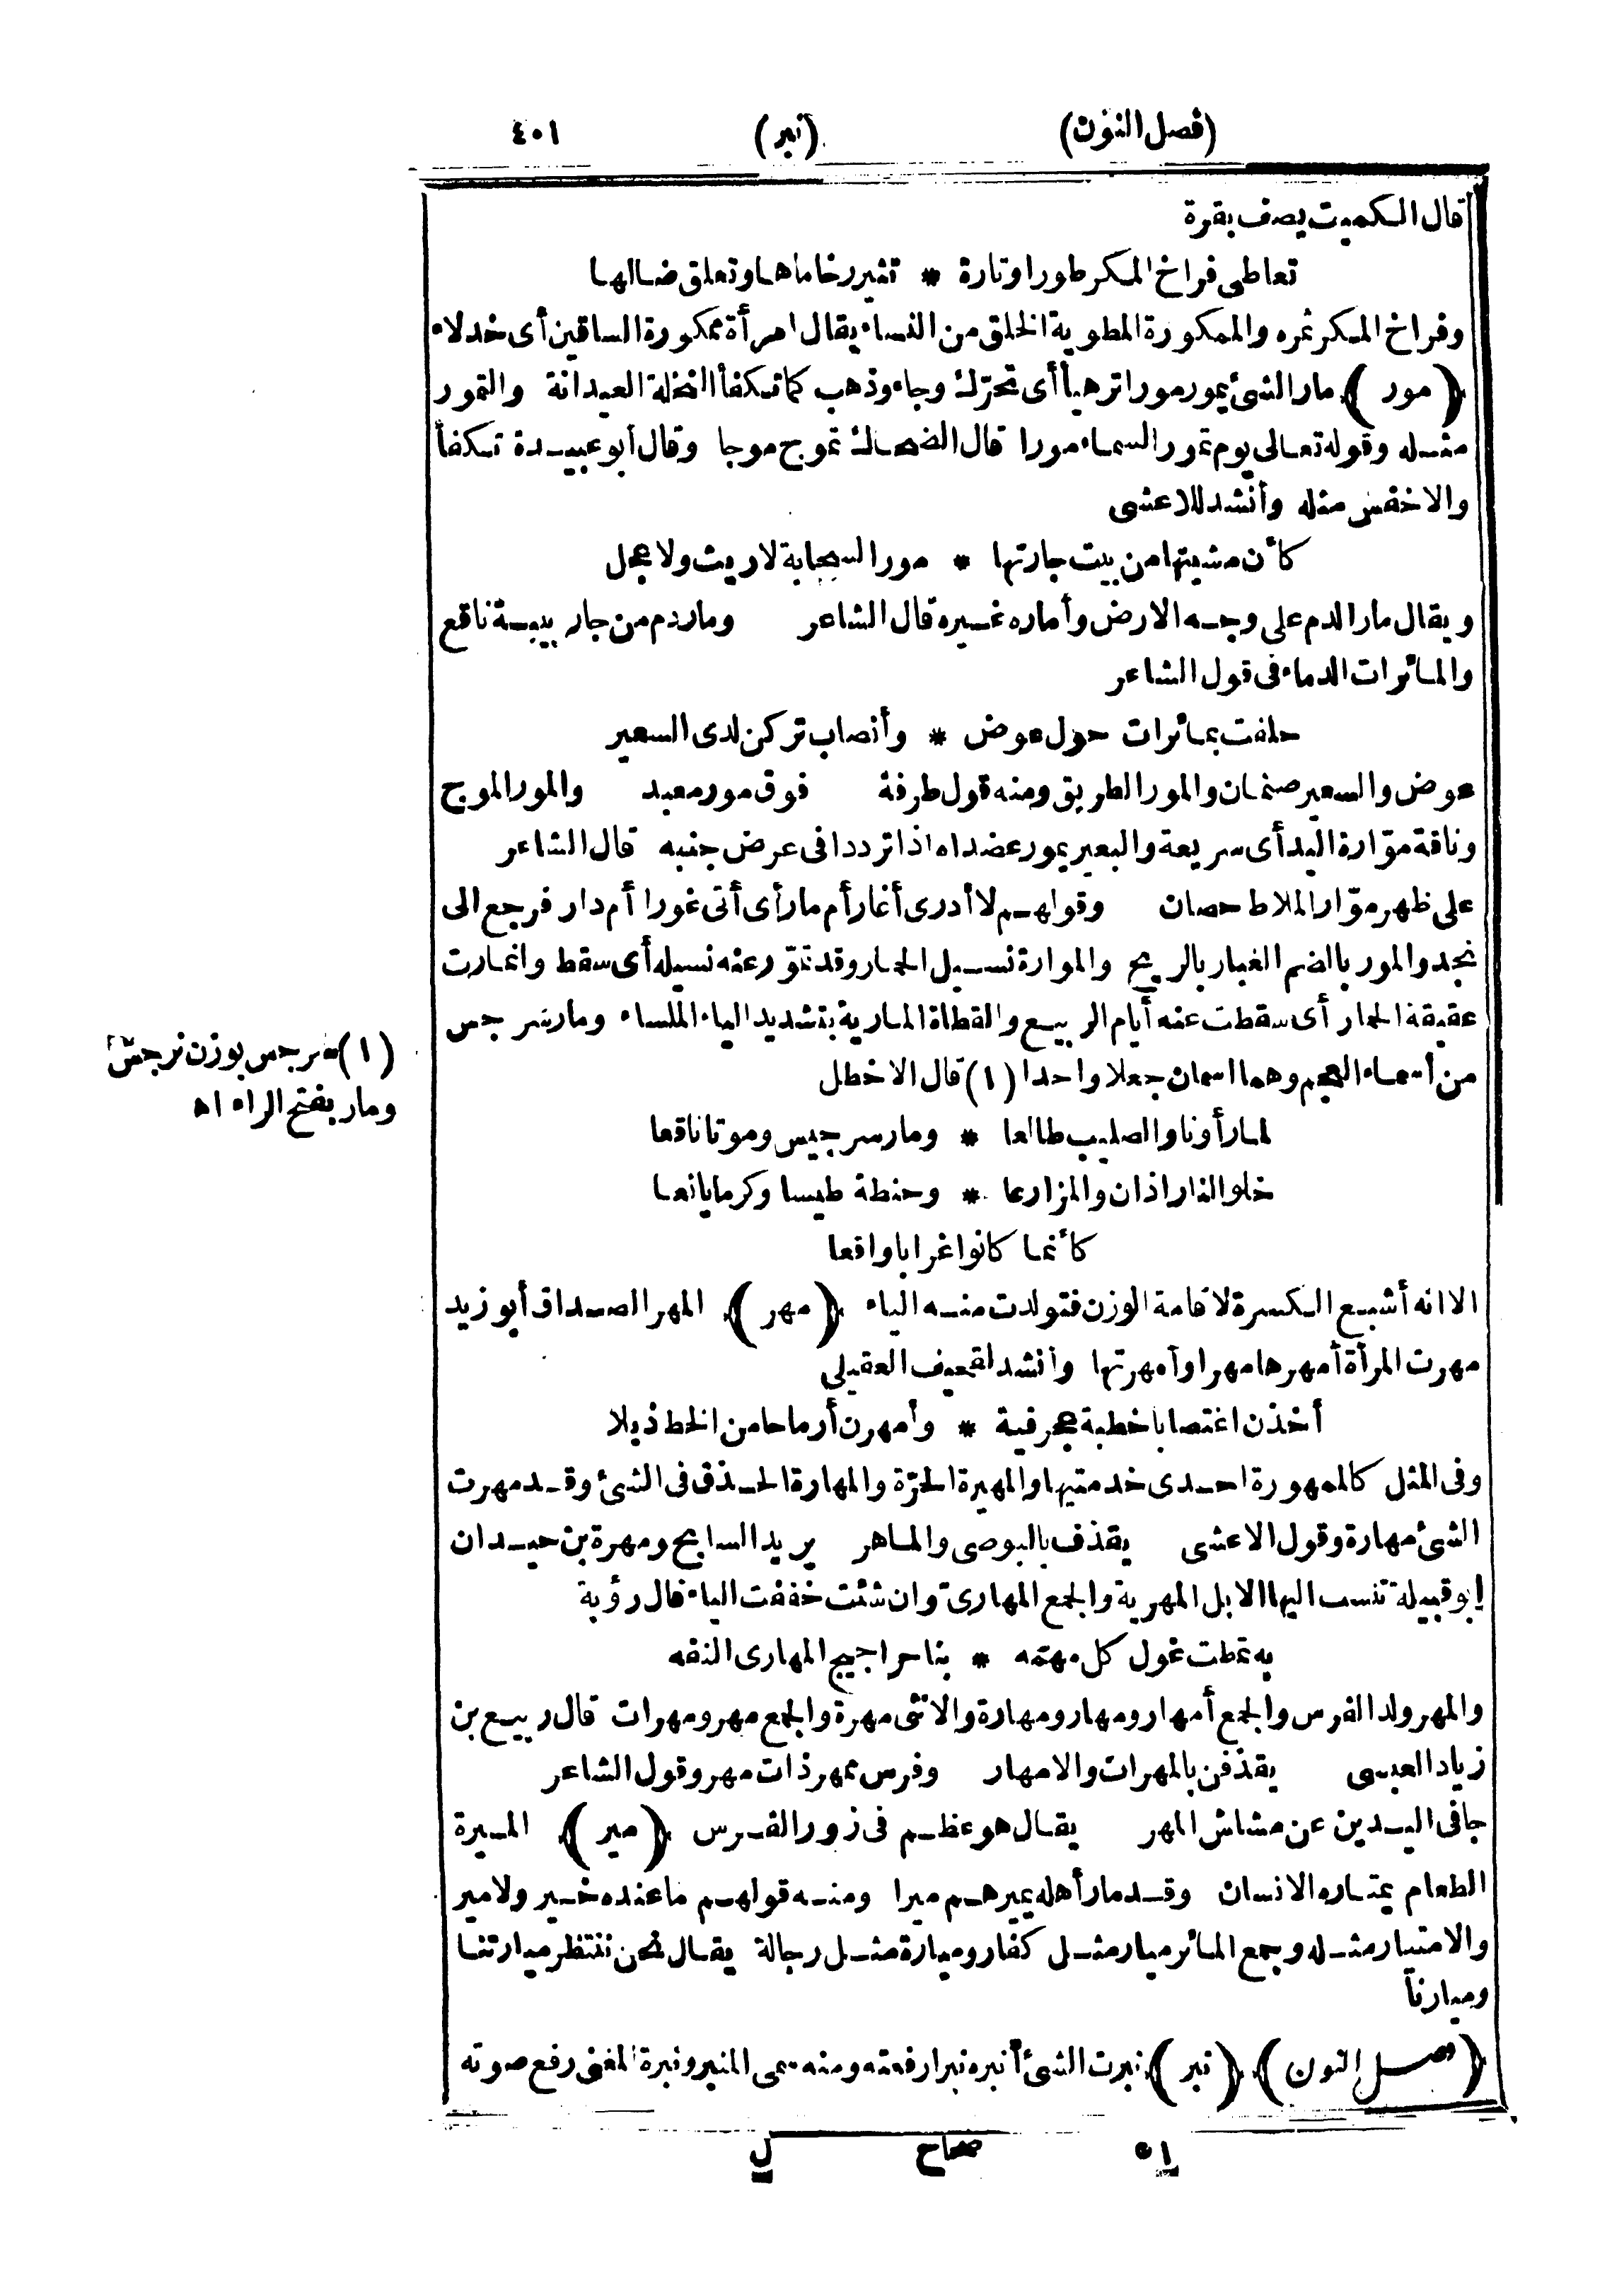 (فصل النون) (نبر) ٤٠١
قال الكميت يصف بقرة
تعاطى فراخ المكر طورا وتارة * تثير رخاماها وتعلق ضالها
وفراخ المكر ثمره والممكورة المطوية الخلق من النساء يقال امرأة ممكورة الساقين أى خدلاء
(مور) مار الشئ يمور مورا ترهيأ أى تحرّك وجاء وذهب كما تتكفأ النخلة العيدانة والتمور
مثله وقوله تعالى يوم تمور السماء مورا قال الضحاك تموج موجا وقال أبو عبيدة تكفأ
والاخفش مثله وأنشد للاعشى
كأن مشيتها من بيت جارتها * مور السحابة لا ريث ولا عجل
ويقال مار الدم على وجه الارض وأماره غيره قال الشاعر وماردم من جار بيبة ناقع
والمائرات الدماء فى قول الشاعر
حلفت بمائرات حول عوض * وأنصاب تركن لدى السعير
عوض والسعير صنمان والمور الطريق ومنه قول طرفة فوق مور معبد والمور الموج
وناقة موّارة اليد أى سريعة والبعير يمور عضداه اذا ترددا فى عرض جنبه قال الشاعر
على ظهر موّار الملاط حصان وقولهم لا أدرى أغار أم مار أى أتى غورا أم دار فرجع الى
نجد والمور بالضم الغبار بالريح والموارة نسيل الحمار وقد تموّر عنه نسيله أى سقط وانمارت
عقيقة الحمار أى سقطت عنه أيام الربيع والقطاة المارية بتشديد الياء الملساء ومارسرجس
من أسماء العجم وهما اسمان جعلا واحدا (١) قال الاخطل
لما رأونا والصليب طالعا * ومارسرجيس وموتا ناقعا
خلوا لنا راذان والمزارعا * وحنطة طيسا وكرما يانعا
كأنما كانوا غرابا واقعا
الا انه أشبع الكسرة لاقامة الوزن فتولدت منه الياء (مهر) المهر الصداق أبو زيد
مهرت المرأة أمهرها مهرا وأمهرتها وأنشد لقحيف العقيلى
أخذن اغتصابا خطبة عجرفية * وأمهرن أرماحا من الخط ذبلا
وفى المثل كالممهورة احدى خدمتيها والمهيرة الحرّة والمهارة الحذق فى الشئ وقد مهرت
الشئ مهارة وقول الاعشى يقذف بالبوصى والماهر يريد السابح ومهرة بن حيدان
أبو قبيلة تنسب اليها الابل المهرية والجمع المهارىّ وان شئت خففت الياء قال رؤبة
به تمطت غول كل مهمّه * بنا حراجيج المهارى النفه
والمهر ولد الفرس والجمع أمهار ومهار ومهارة والانثى مهرة والجمع مهر ومهرات قال ربيع بن
زياد العبسى يقذفن بالمهرات والامهار وفرس ممهر ذات مهر وقول الشاعر
جافى اليدين عن مشاش المهر يقال هو عظم فى زور الفرس (مير) الميرة
الطعام يمتاره الانسان وقد مار أهله يميرهم ميرا ومنه قولهم ما عنده خير ولا مير
والامتيار مثله وجمع المائر ميار مثل كفار وميارة مثل رجالة يقال نحن ننتظر ميارتنا
وميارنا
(فصل النون) (نبر) نبرت الشئ أنبره نبرا رفعته ومنه سمى المنبر ونبرة المغنى رفع صوته
(١) سرجس بوزن نرجس
ومار بفتح الراء اه
٥١ صحاح ل